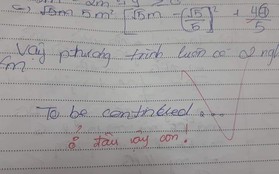 [√5m - (√5)/5]² + 49/5
Vậy phương trình luôn có 2 ngh
∀m
To be continued...
Ở đâu vậy con!